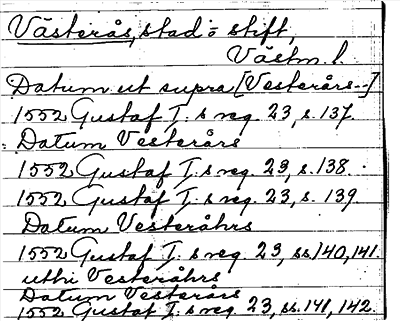 Västerås, stad o stift,
Västm. l.
Datum ut supra [Vesterårs--]
1552 Gustaf I:s reg. 23, s. 137.
Datum Vesterårs
1552 Gustaf I:s reg. 23, s. 138.
1552 Gustaf I:s reg. 23, s. 139.
Datum Vesteråhrs
1552 Gustaf I:s reg. 23, ss. 140, 141.
uthi Vesteråhrs
Datum Vesterårs
1552 Gustaf I:s reg. 23, ss. 141, 142.